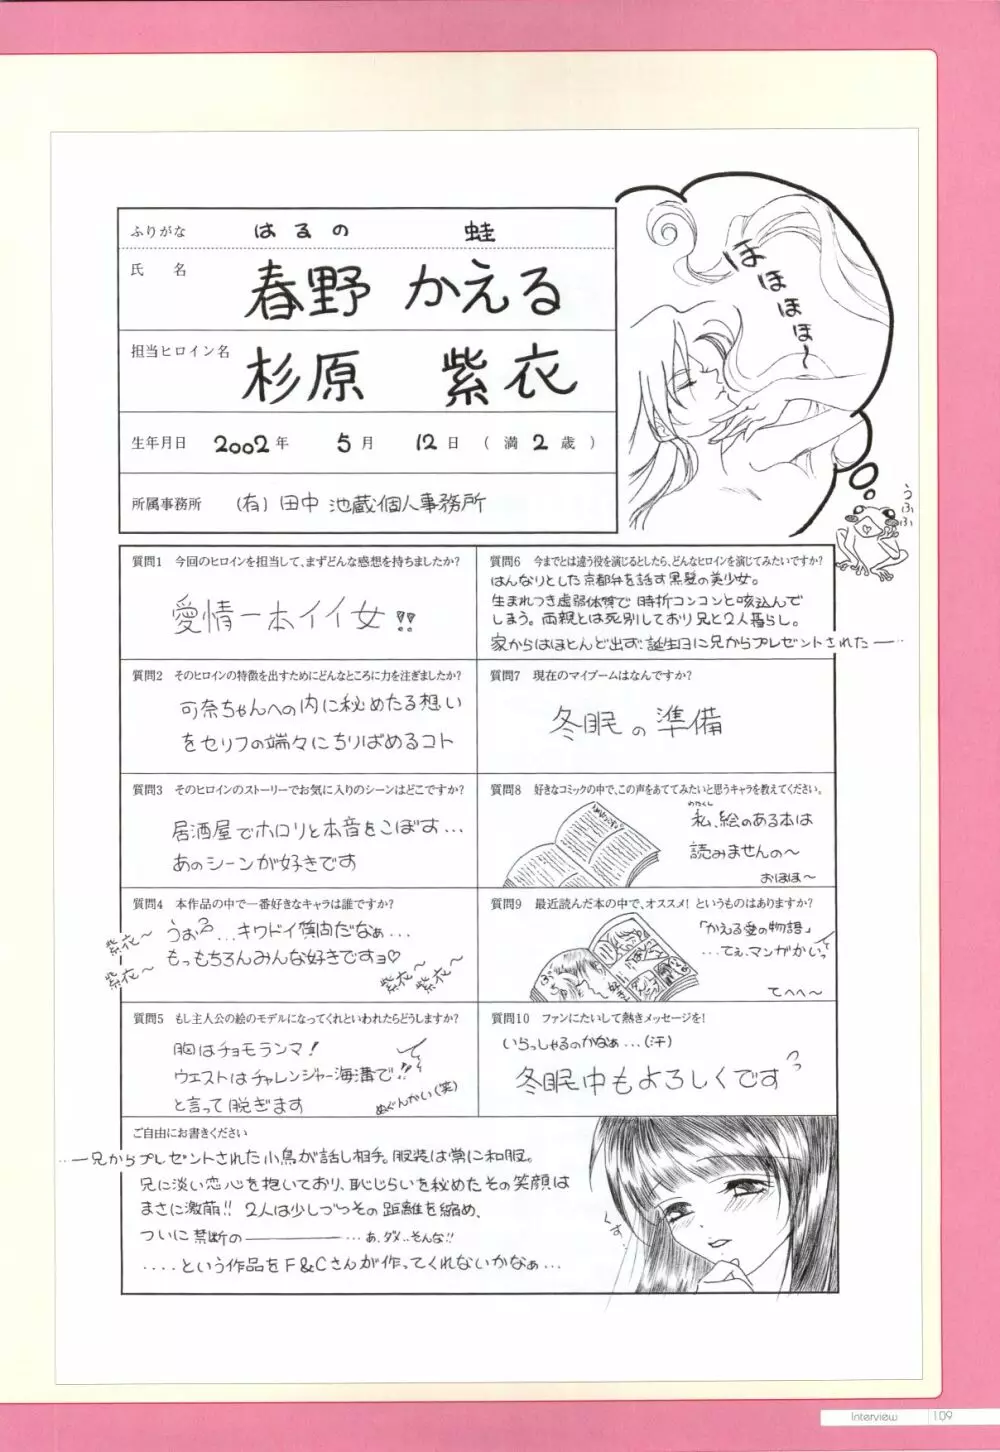 ふりがな はるの 蛙
氏名 春野 かえる
担当ヒロイン名 杉原 紫衣
生年月日 2002年 5月 12日 (満2歳)
所属事務所 (有)田中 池蔵個人事務所
ほほほほ〜
うふふ
質問1 今回のヒロインを担当して、まずどんな感想を持ちましたか?
愛情一本イイ女!!
質問2 そのヒロインの特徴を出すためにどんなところに力を注ぎましたか?
可奈ちゃんへの内に秘めたる想い
をセリフの端々にちりばめるコト
質問3 そのヒロインのストーリーでお気に入りのシーンはどこですか?
居酒屋でホロリと本音をこぼす…
あのシーンが好きです
質問4 本作品の中で一番好きなキャラは誰ですか?
うおっ…キワドイ質問だなぁ…
もっもちろんみんな好きですョ♡
紫衣〜
紫衣〜
紫衣〜
紫衣〜
質問5 もし主人公の絵のモデルになってくれといわれたらどうしますか?
胸はチョモランマ!
ウエストはチャレンジャー海溝で!!
と言って脱ぎます
ぬぐんかい(笑)
質問6 今までとは違う役を演じるとしたら、どんなヒロインを演じてみたいですか?
はんなりとした京都弁を話す黒髪の美少女。
生まれつき虚弱体質で時折コンコンと咳込んで
しまう。両親とは死別しており兄と2人暮らし。
家からはほとんど出ず、誕生日に兄からプレゼントされた―…
質問7 現在のマイブームはなんですか?
冬眠の準備
質問8 好きなコミックの中で、この声をあててみたいと思うキャラを教えてください。
わたくし
私、絵のある本は
読みませんの〜
おほほ〜
質問9 最近読んだ本の中で、オススメ!というものはありますか?
「かえる愛の物語」
…てぇ、マンガかいっ
てへへ〜
質問10 ファンにたいして熱きメッセージを!
いらっしゃるのかなぁ…(汗)
冬眠中もよろしくです
ご自由にお書きください
…―兄からプレゼントされた小鳥が話し相手。服装は常に和服。
兄に淡い恋心を抱いており、恥じらいを秘めたその笑顔は
まさに激萌!! 2人は少しづつその距離を縮め、
ついに禁断の――――…あ、ダメ..そんな!!
....という作品をF&Cさんが作ってくれないかなぁ…
くす…
Interview 109